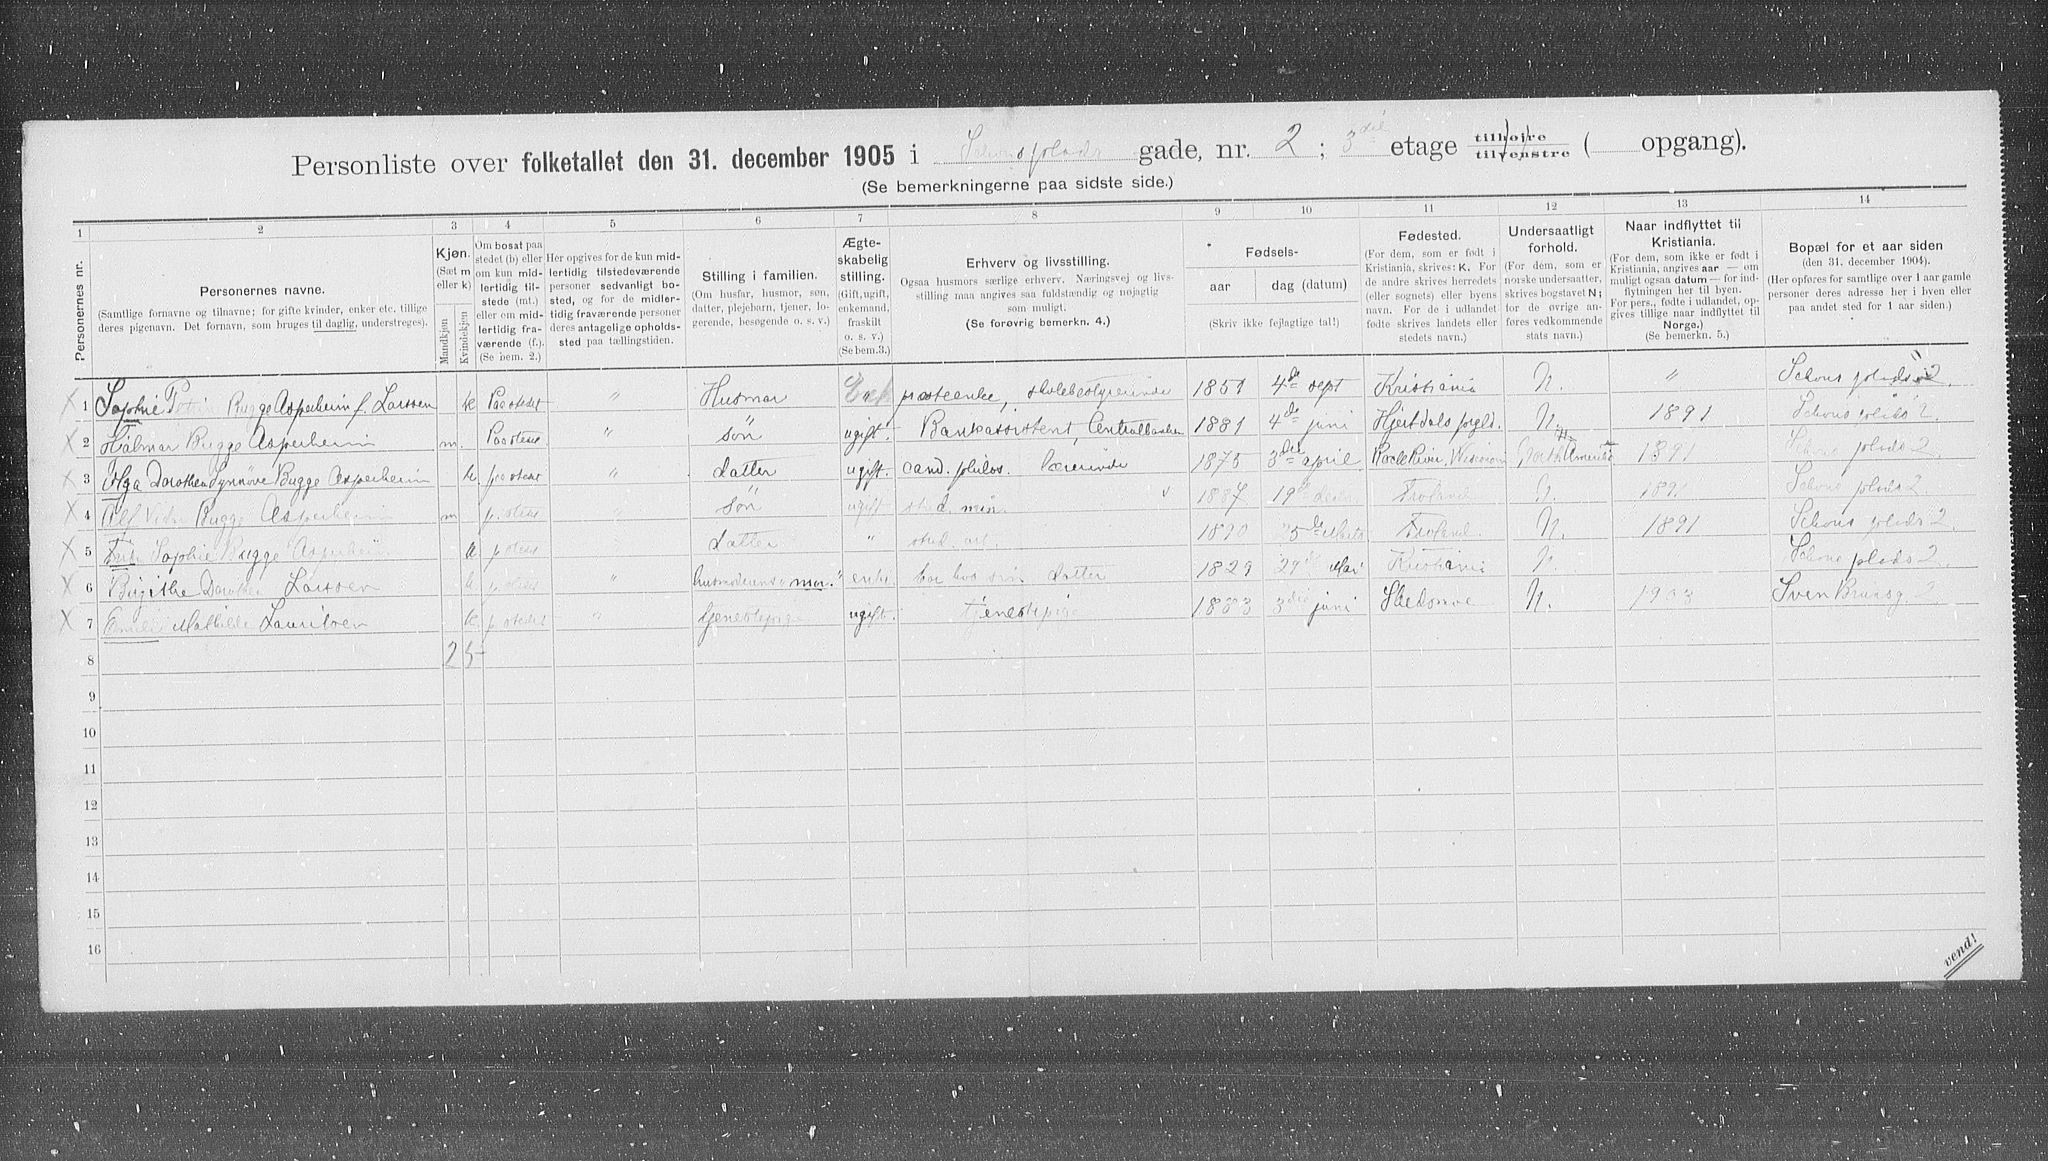 Personliste over folketallet den 31. december 1905 i Schous plads gade, nr. 2 ; 3die etage tilhøjre tilvenstre ( opgang).
(Se bemerkningerne paa sidste side.)
1 2 3 4 5 6 7 8 9 10 11 12 13 14
Personernes nr.
Personernes navne.
(Samtlige fornavne og tilnavne; for gifte kvinder, enker etc. tillige deres pigenavn. Det fornavn, som bruges til daglig, understreges).
Kjøn.
(Sæt m eller k)
Mandkjøn
Kvindekjøn
Om bosat paa stedet (b) eller om kun midlertidig tilstede (mt.) eller em midlertidig fraværende (f.). (Se bem. 2.)
Her opgives for de kun midlertidig tilstedeværende personer sedvanligt bosted, og for de midlertidig fraværende personer deres antagelige opholdssted paa tællingstiden.
Stilling i familien.
(Om husfar, husmor, søn, datter, plejebarn, tjener, logerende, besøgende o. s. v.)
Ægteskabelig stilling.
(Gift, ugift, enkemand, fraskilt o. s. v.) (Se bem. 3.)
Erhverv og livsstilling.
Ogsaa husmors særlige erhverv. Næringsvej og livsstilling maa angives saa fuldstændig og nøjagtig som muligt.
(Se forøvrig bemerkn. 4.)
Fødsels-
aar dag (datum)
(Skriv ikke fejlagtige tal!)
Fødested.
(For dem, som er født i Kristiania, skrives: K. For de andre skrives herredets (eller sognets) eller byens navn. For de i udlandet fødte skrives landets eller stedets navn.)
Undersaatligt forhold.
(For dem, som er norske undersaatter, skrives bogstavet N; for de øvrige anføres vedkommende stats navn.)
Naar indflyttet til Kristiania.
(For dem, som ikke er født i Kristiania, angives aar — om muligt ogsaa datum — for indflytningen her til byen. For pers., fødte i udlandet, opgives tillige naar indflyttet til Norge.)
(Se bemerkn. 5.)
Bopæl for et aar siden
(den 31. december 1904).
(Her opføres for samtlige over 1 aar gamle personer deres adresse her i byen eller paa andet sted for 1 aar siden.)
1 Sophie Bugge Asperheim f. Larssen k Paa stedet " Husmor Enke præsteenke, skolebestyrerinde 1851 4de sept Kristiania N. " Schous plads 2.
2 Hjalmar Bugge Asperheim m. Paa stedet " søn ugift. Bankassistent, Centralbanken 1881 4de juni Hjertdals prgld. N. 1891 Schous plads 2.
3 Olga Dorothea Synnöve Bugge Asperheim k. pa stedet " datter ugift. cand. philos. lærerinde 1875 3die april. N. Amerika 1891 Schous plads 2.
4 Alf Bugge Asperheim m p. stedet " søn ugift stud. min. 1887 19de decbr. N. 1891 Schous plads 2.
5 Sophie Bugge Asperheim k p. stedet datter " stud. art. 1890 5te N. 1891 Schous plads 2.
6 Birgithe Dorothea Larssen k p. stedet " husmoderens mor. enke hos sin datter 1829 29de Mai Kristiania N. Schous plads 2.
7 Mathilde Lauritsen k. p. stedet " tjenestepige ugift. tjenestepige 1883 3die juni Skedsmo N. 1903 Sven Brunsg. 2
8 2 5
9
10
11
12
13
14
15
16
vend!